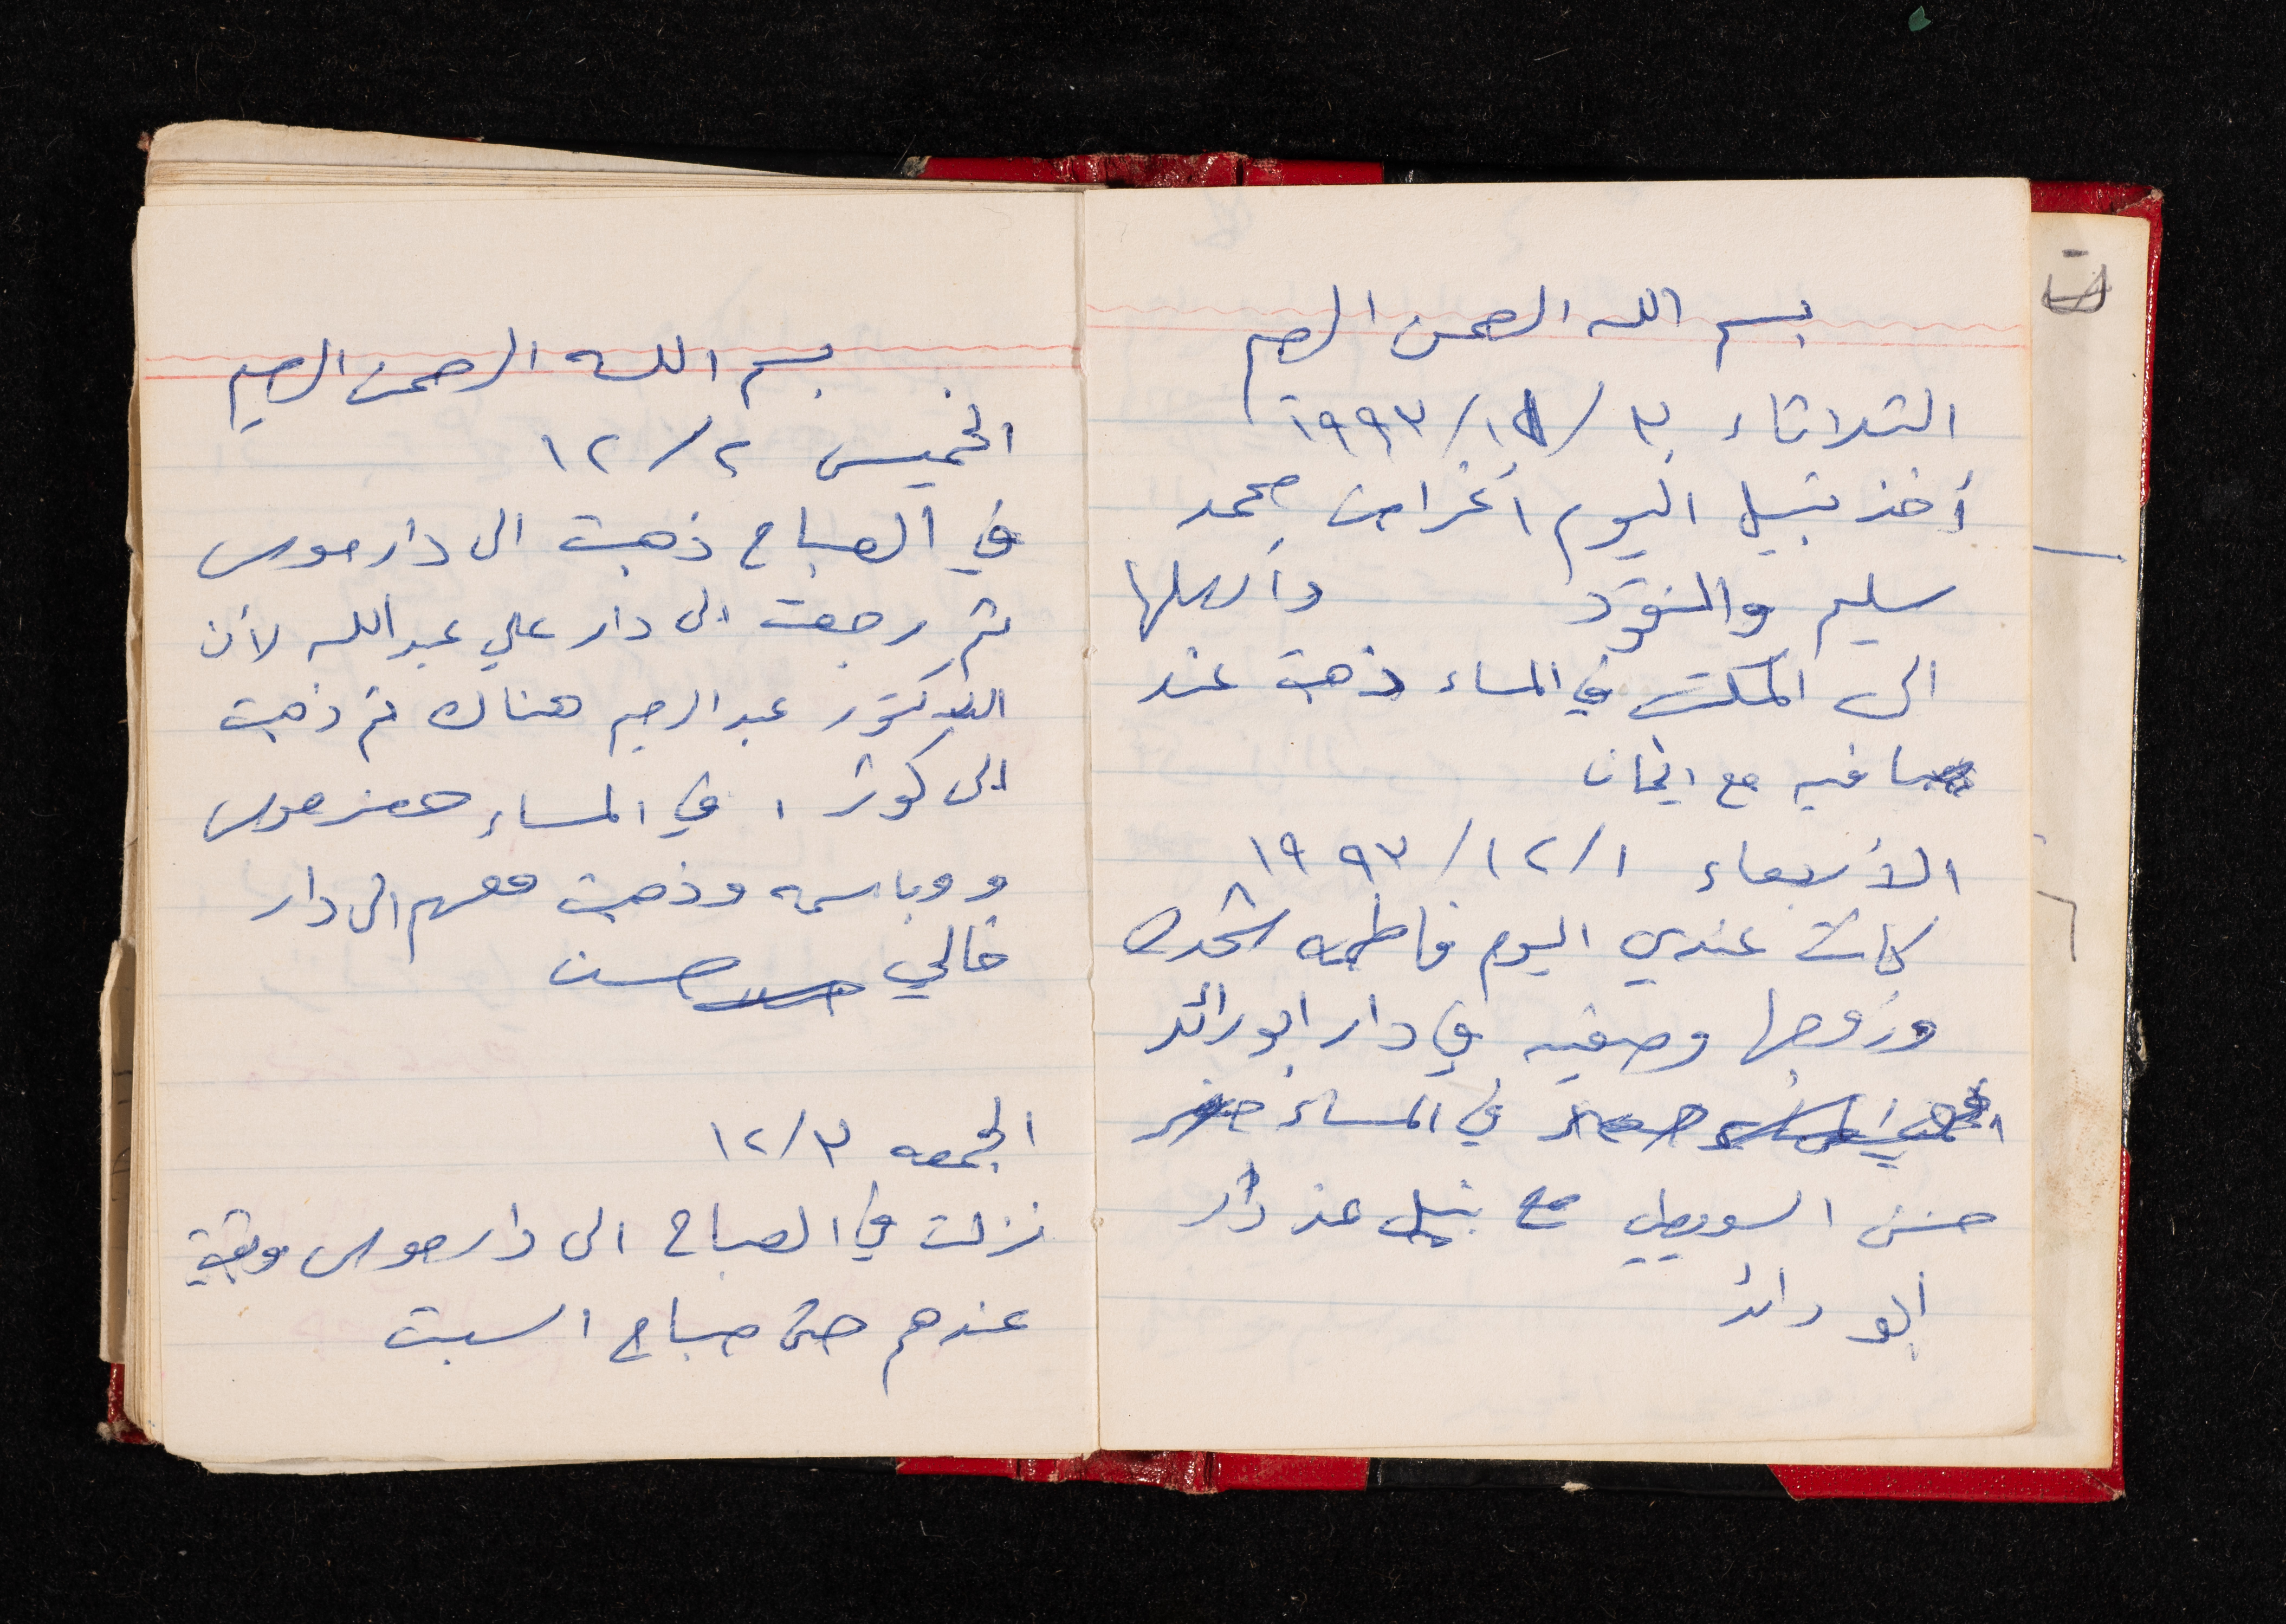 بسم الله الرحمن الرحيم
الثلاثاء ٣٠/١١/١٩٩٣
أخذ نبيل اليوم اغراض محمد
سليم والنقود وأرسلها
الى المكتب في المساء ذهبت عند
صافيه مع ايمان
الأربعاء ١/١٢/١٩٩٣
كانت عندي اليوم فاطمه شحده
وزوجها وصفيه في دار ابو رائد
في المساء حضر
حسن السويطي مع نبيل عند دار
ابو رائد
بسم الله الرحمن الرحيم
الخميس ٢/١٢
في الصباح ذهبت الى دار موسى
ثم رجعت الى دار علي عبدالله لأن
الدكتور عبد الرحيم هناك ثم ذهبت
الى كوثر، في المساء حضر موسى
و وباسمه وذهبت معهم الى دار
خالي حسن
الجمعه ٣/١٢
نزلت في الصباح الى دار موسى وبقيت
عندهم حتى صباح السبت